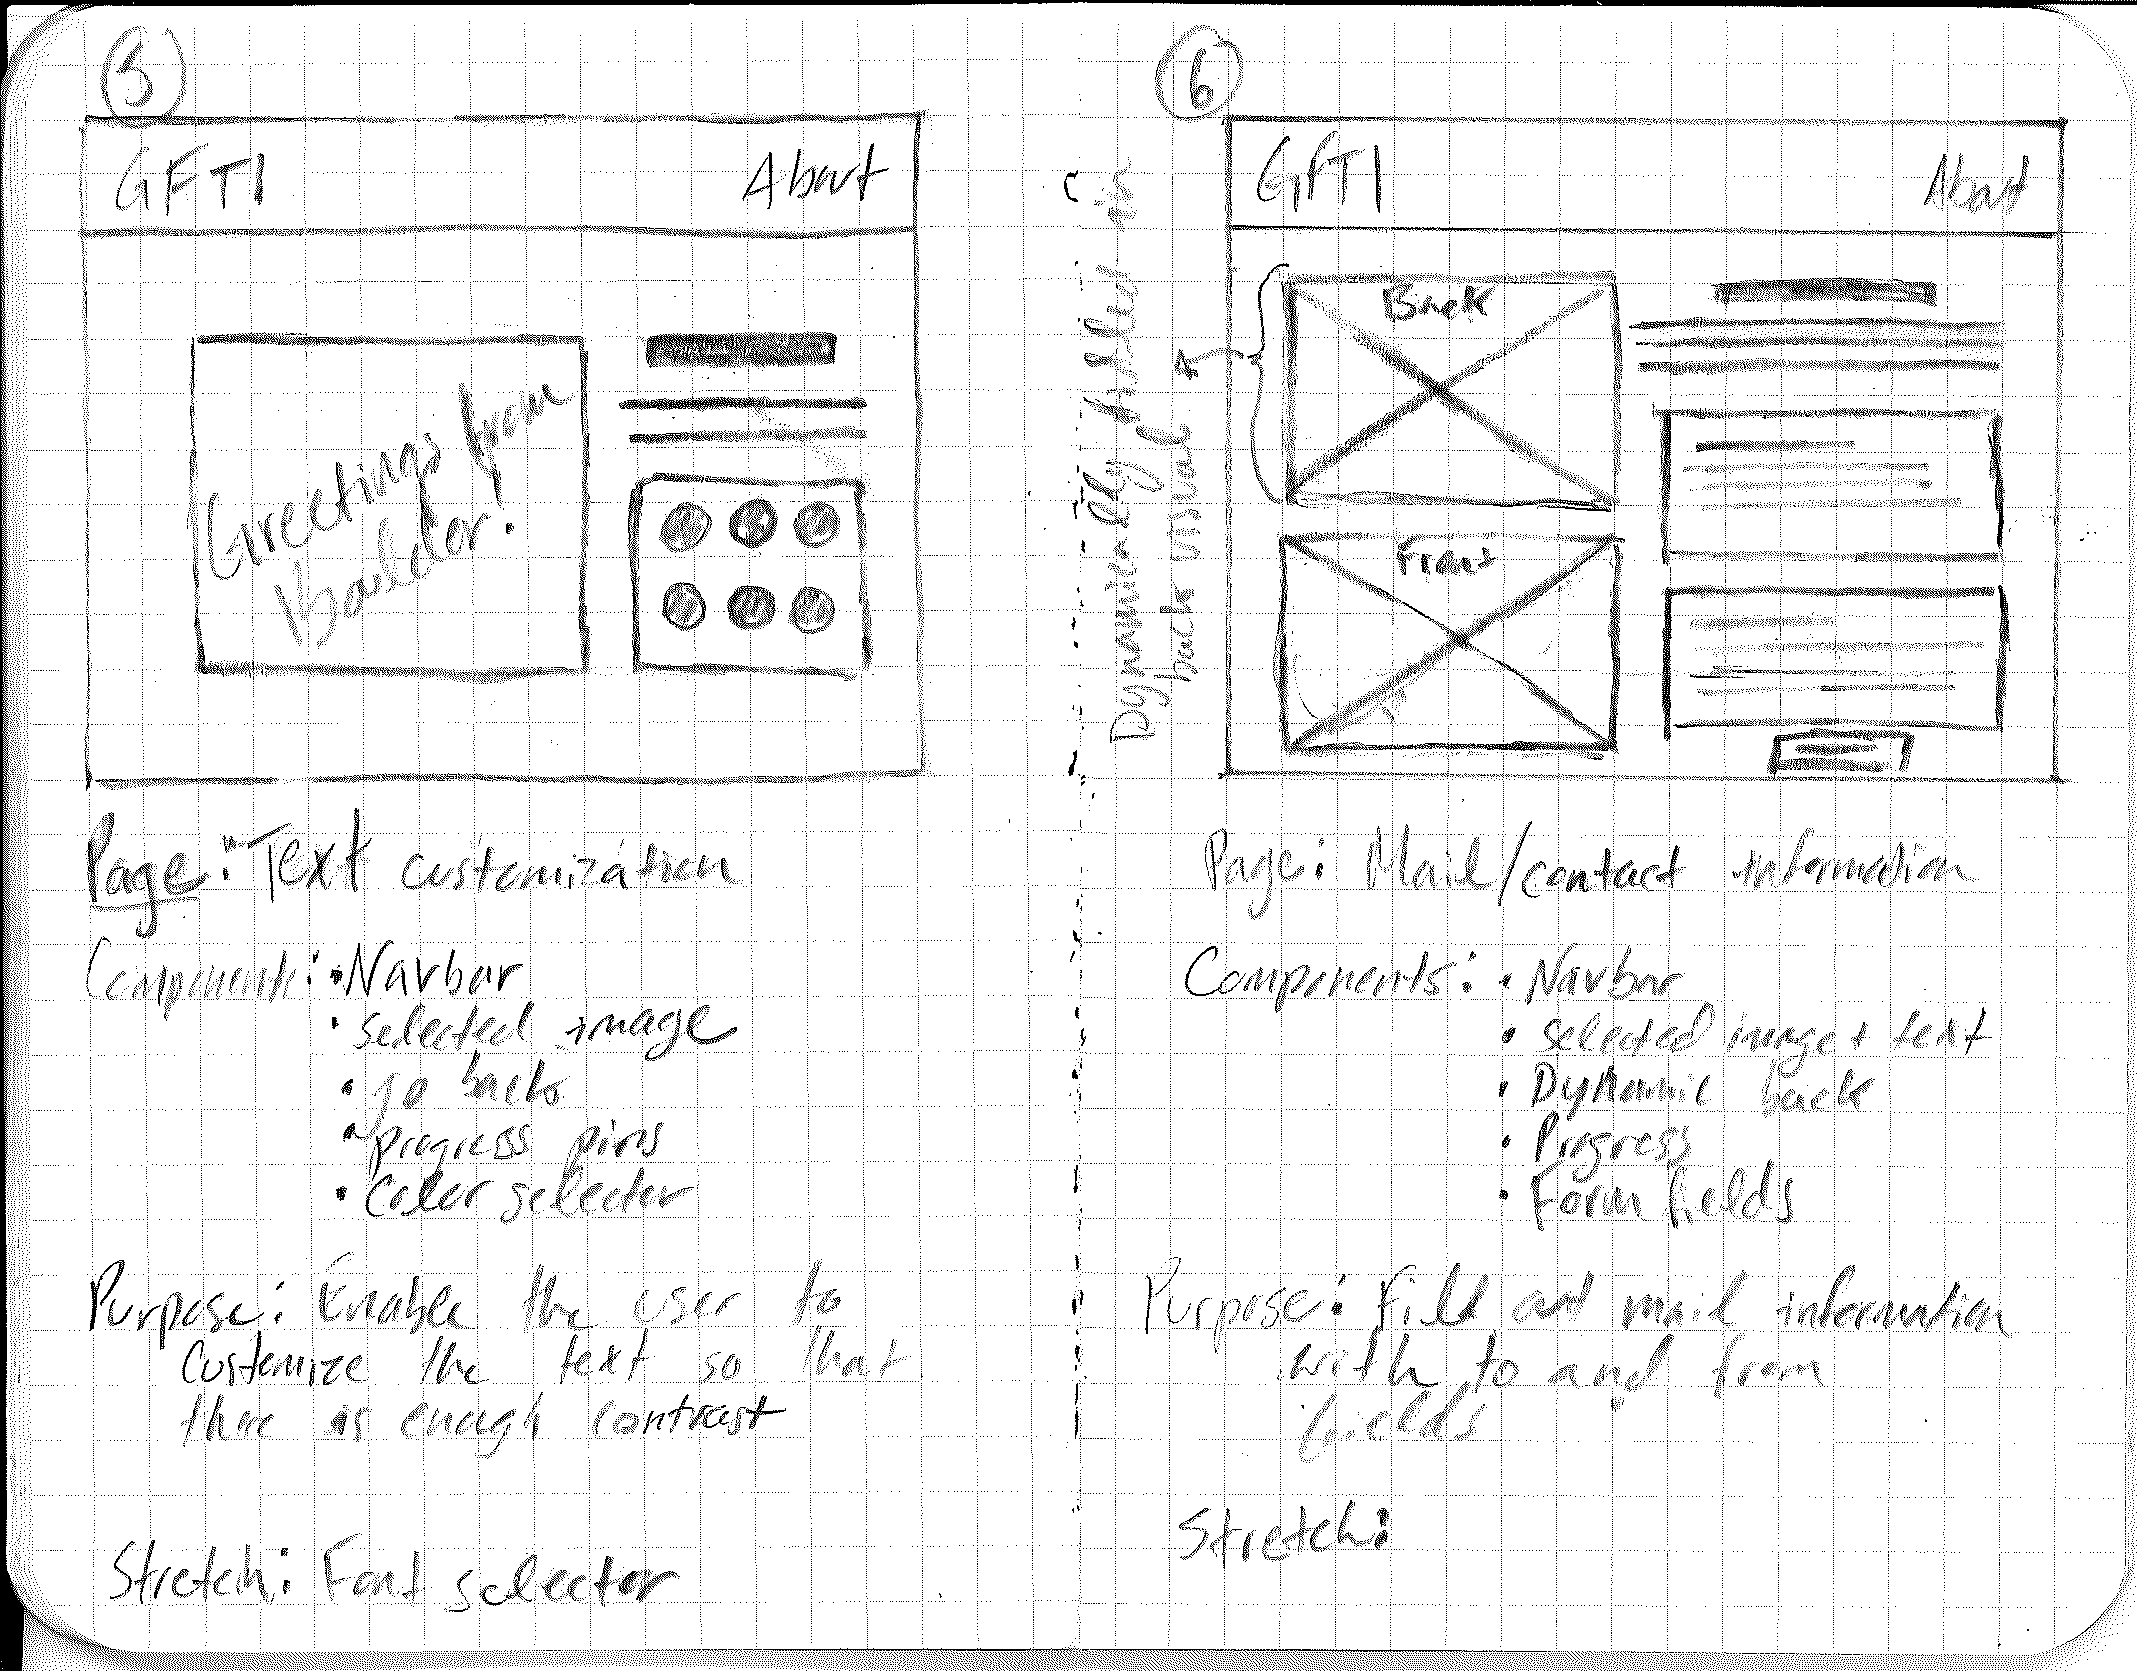 5
GFTI About
Greetings from
Boulder!
Page: Text customization
Components: • Navbar
• selected image
• go back
• progress pins
• Color selector
Purpose: Enable the user to
customize the text so that
there is enough contrast
Stretch: Font selector
6
GFTI About
Back
Front
Dynamically filled in
back visual
Page: Mail/contact information
Components: • Navbar
• selected image + text
• Dynamic back
• Progress
• Form fields
Purpose: Fill out mail information
with to and from
fields
Stretch: